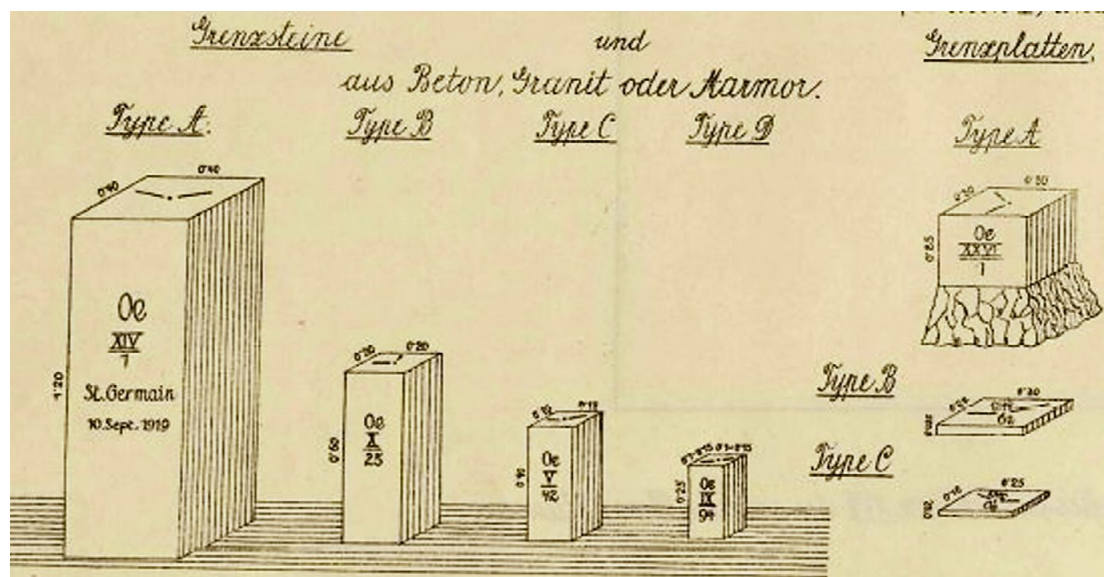 Grenzsteine und Grenzplatten,
aus Beton, Granit oder Marmor.
Type A.
0'40 0'40
1'20
Oe
XIV
7
St. Germain
10. Sept. 1919
Type B
0'20 0'20
0'60
Oe
X
25
Type C
0'12
Oe
V
42
Type D
0'25
Oe
IX
94
Type A
0'30 0'30
Oe
XXVI
1
Type B
Type C
0'25